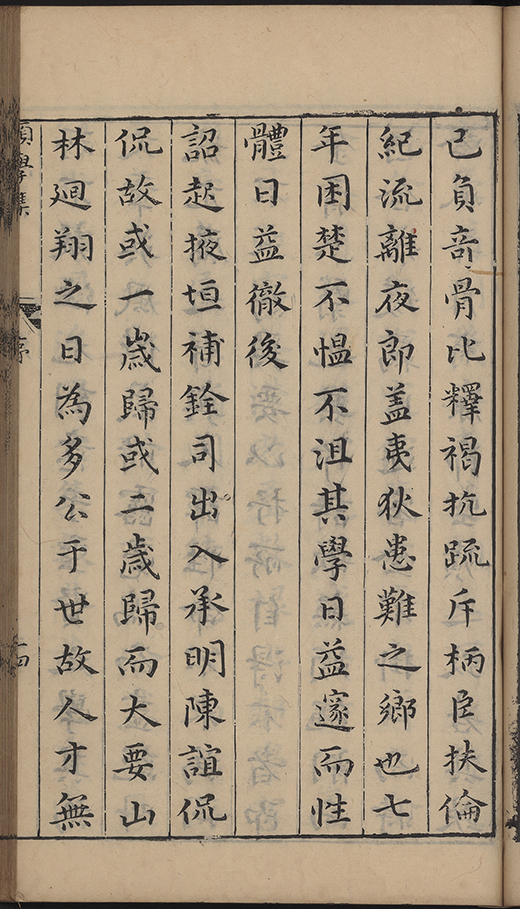 已負奇骨比釋褐抗疏斥柄臣扶倫
紀流離夜郎盖夷狄患難之鄉也七
年困楚不愠不沮其學日益邃而性
體日益徹後
詔起掖垣補銓司出入承明陳誼侃
侃故或一歲歸或二歲歸而大要山
林迴翔之日為多公于世故人才無
願學集
序